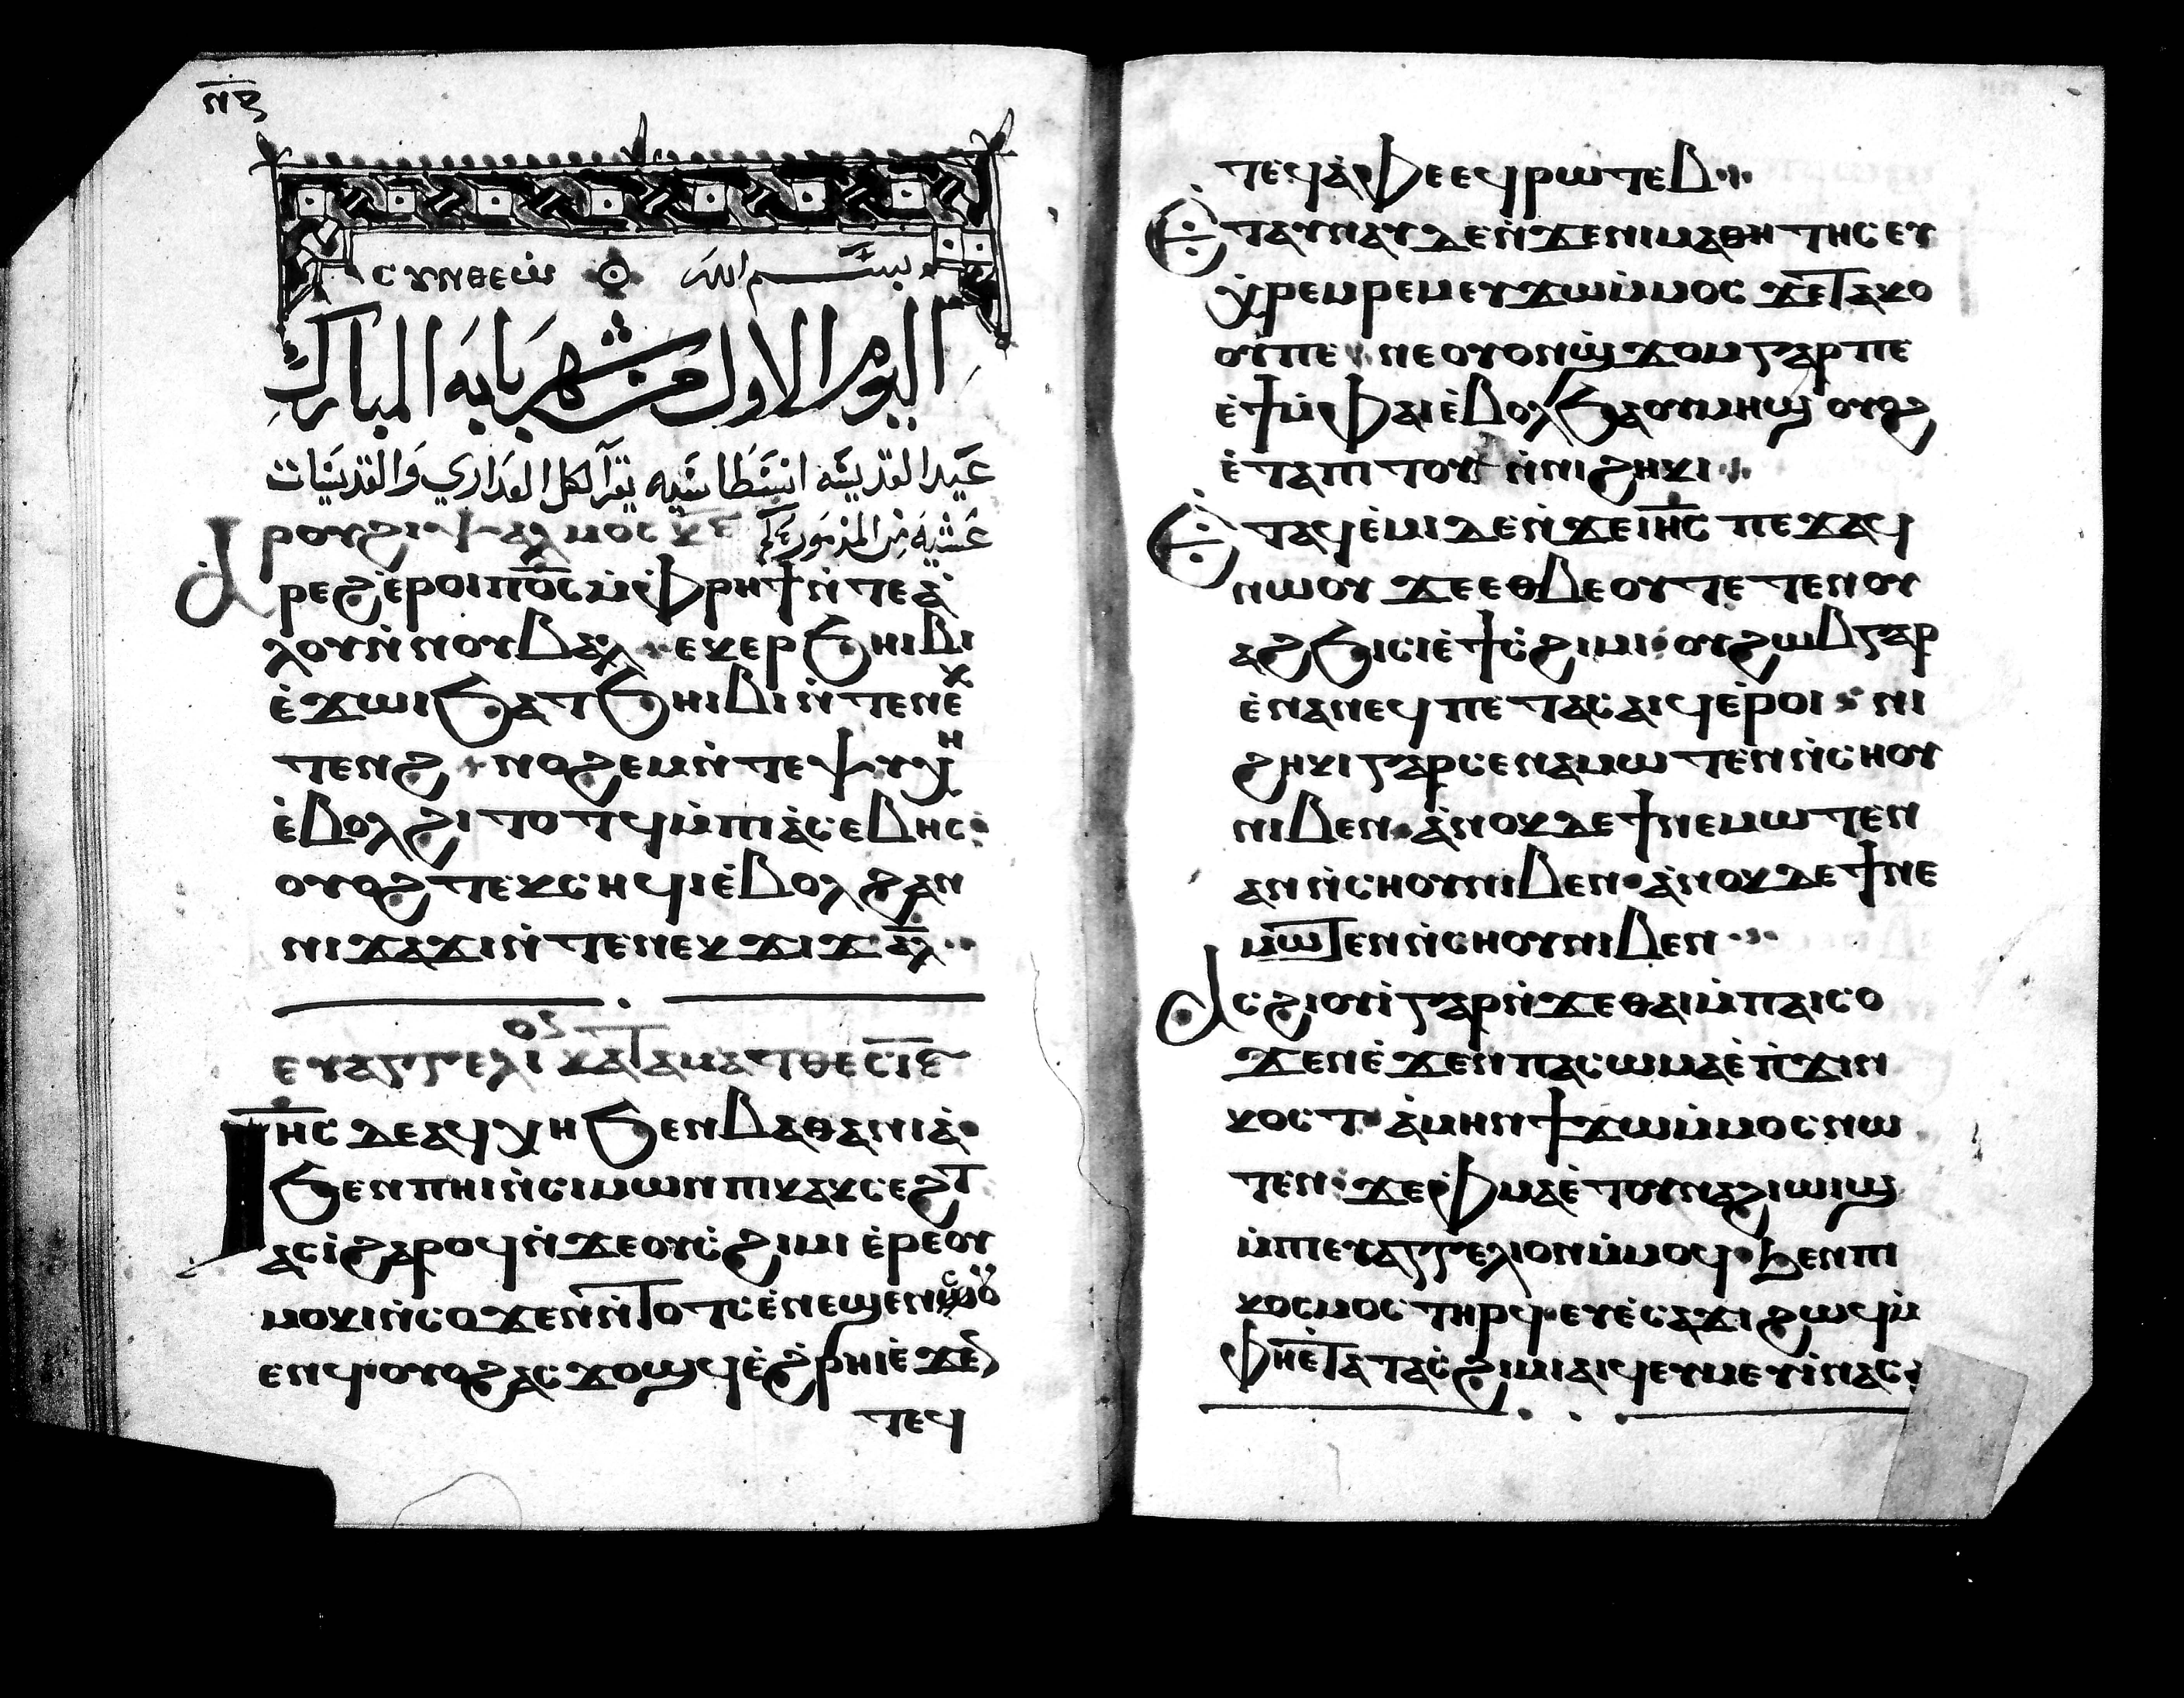 ⲛⲋ
ⲥⲩⲛⲑⲉⲱ̀ بسم الله
اليوم الاول من شهر بابه المبارك
عيد القديسه انسطاسيه يقرآ لكل العداري والقديسات
ⲣⲟⲩϩⲓ ⲯⲁⲗⲙⲟⲥ عشيه من المزمور
Ⲁ̀ⲣⲉϩ ⲉ̀ⲣⲟⲓ ⲡ⳪ ⲙ̀ⲫⲣⲏϯ ⲛ̀ⲧⲉ ⲁ̀
ⲗⲟⲩ ⲛ̀ⲛⲟⲩⲃⲁⲗ ⲉⲕⲉⲣϧⲏⲓⲃⲓ
ⲉ̀ϫⲱⲓ ϧⲁ ⲧϧⲏⲓⲃⲓ ⲛ̀ⲧⲉ ⲛⲉⲕ
ⲧⲉⲛϩ ⲛⲟϩⲉⲙ ⲛ̀ⲧⲉⲯⲩⲭⲏ
ⲉ̀ⲃⲟⲗ ϩⲓⲧⲟⲧϥ ⲙ̀ⲡⲓⲁ̀ⲥⲉⲃⲏⲥ
ⲟⲩⲟϩ ⲧⲉⲕⲥⲏϥⲓ ⲉ̀ⲃⲟⲗ ϩⲁⲛ
ⲛⲓϫⲁϫⲓ ⲛ̀ⲧⲉ ⲛⲉⲕϫⲓϫ ⲁⲗ
ⲉⲩⲁⲅⲅⲉⲗⲓ ⲕⲁⲧⲁ ⲙⲁⲧⲑⲉ ⲥⲓⲉ
Ⲓⲏⲥ ⲇⲉ ⲁϥⲭⲏ ϧⲉⲛ ⲃⲁⲑⲁⲛⲓⲁ̀
ϧⲉⲛ ⲡⲏⲓ ⲛ̀ⲥⲓⲙⲱⲛ ⲡⲓⲕⲁⲕⲥⲉϩⲧ
ⲁⲥⲓ̀ ϩⲁⲣⲟϥ ⲛ̀ϫⲉ ⲟⲩⲥ̀ϩⲓⲙⲓ ⲉ̀ⲣⲉ ⲟⲩ
ⲙⲟⲕⲓ ⲛ̀ⲥⲟϫⲉⲛ ⲛ̀ⲧⲟⲧⲥ ⲉ̀ⲛⲉϣⲉⲛⲥⲟⲩ
ⲉⲛϥ ⲟⲩⲟϩ ⲁⲥϫⲟϣϥ ⲉ̀ϩ̀ⲣⲏⲓ ⲉ̀ϫⲉⲛ
ⲧⲉϥ
ⲧⲉϥⲁ̀ⲫⲉ ⲉϥⲣⲱⲧⲉⲃ
Ⲉⲧⲁⲩⲛⲁⲩ ⲇⲉ ⲛ̀ϫⲉ ⲛⲓⲙⲁⲑⲏⲧⲏⲥ ⲉⲩ
ⲭ̀ⲣⲉⲙⲣⲉⲙ ⲉⲩϫⲱ ⲙ̀ⲙⲟⲥ ϫⲉ ⲧⲁⲕⲟ
ⲟⲩ ⲡⲉ ⲛⲉ ⲟⲩⲟⲛ ϣϫⲟⲙ ⲅⲁⲣ ⲡⲉ
ⲉ̀ϯ ⲙ̀ⲫⲁⲓ ⲉ̀ⲃⲟⲗ ϧⲁ ⲟⲩⲙⲏϣ ⲟⲩⲟϩ
ⲉ̀ⲧⲁⲡⲓⲧⲟⲩ ⲛ̀ⲛⲓϩⲏⲕⲓ
Ⲉⲧⲁϥⲉ̀ⲙⲓ ⲇⲉ ⲛ̀ϫⲉ ⲓⲏⲥ ⲡⲉϫⲁϥ
ⲛⲱⲟⲩ ϫⲉ ⲉⲑⲃⲉⲟⲩ ⲧⲉⲧⲉⲛⲟⲩ
ⲁϩϧⲓⲥⲓ ⲉ̀ϯⲥ̀ϩⲓⲙⲓ ⲟⲩϩⲱⲃ ⲅⲁⲣ
ⲉ̀ⲛⲁⲛⲉϥ ⲡⲉⲧⲁⲥⲁⲓϥ ⲉ̀ⲣⲟⲓ ⲛⲓ
ϩⲏⲕⲓ ⲅⲁⲣ ⲥⲉⲛⲁⲙⲱⲧⲉⲛ ⲛ̀ⲥⲏⲟⲩ
ⲛⲓⲃⲉⲛ ⲁ̀ⲛⲟⲕ ⲇⲉ ϯⲛⲉⲙⲱⲧⲉⲛ
ⲁⲛ ⲛ̀ⲥⲏⲟⲩ ⲛⲓⲃⲉⲛ ⲁ̀ⲛⲟⲕ ⲇⲉ ϯⲛⲉ
ⲙⲱⲧⲉⲛ ⲛ̀ⲥⲏⲟⲩ ⲛⲓⲃⲉⲛ
Ⲁⲥϩⲓⲟⲩⲓ̀ ⲅⲁⲣ ⲛ̀ϫⲉ ⲑⲁⲓ ⲙ̀ⲡⲁⲓⲥⲟ
ϫⲉⲛ ⲉ̀ϫⲉⲛ ⲡⲁⲥⲱⲙⲁ ⲉ̀ⲡ̀ϫⲓⲛ
ⲕⲟⲥⲧ ⲁ̀ⲙⲏⲛ ϯϫⲱ ⲙ̀ⲙⲟⲥ ⲛⲱ
ⲧⲉⲛ ϫⲉ ⲫ̀ⲙⲁ ⲉ̀ⲧⲟⲩⲛⲁϩⲓⲱⲓϣ
ⲙ̀ⲡⲉⲩⲁⲅⲅⲉⲗⲓⲟⲛ ⲙ̀ⲙⲟϥ ϧⲉⲛ ⲡⲓ
ⲕⲟⲥⲙⲟⲥ ⲧⲏⲣϥ ⲉⲩⲉ̀ⲥⲁϫⲓ ϩⲱϥ ⲙ̀
ⲫⲏⲉ̀ⲧⲁ ⲧⲁⲥ̀ϩⲓⲙⲓ ⲁⲓϥ ⲉⲩⲙⲉⲩⲓ̀ ⲛⲁⲥ